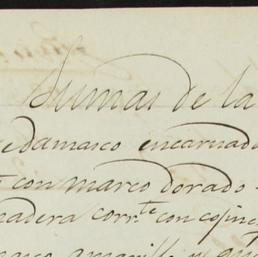 Sumas de la
edamasco encarnado
con marco dorado
adera corr.te con cogine
amarillo